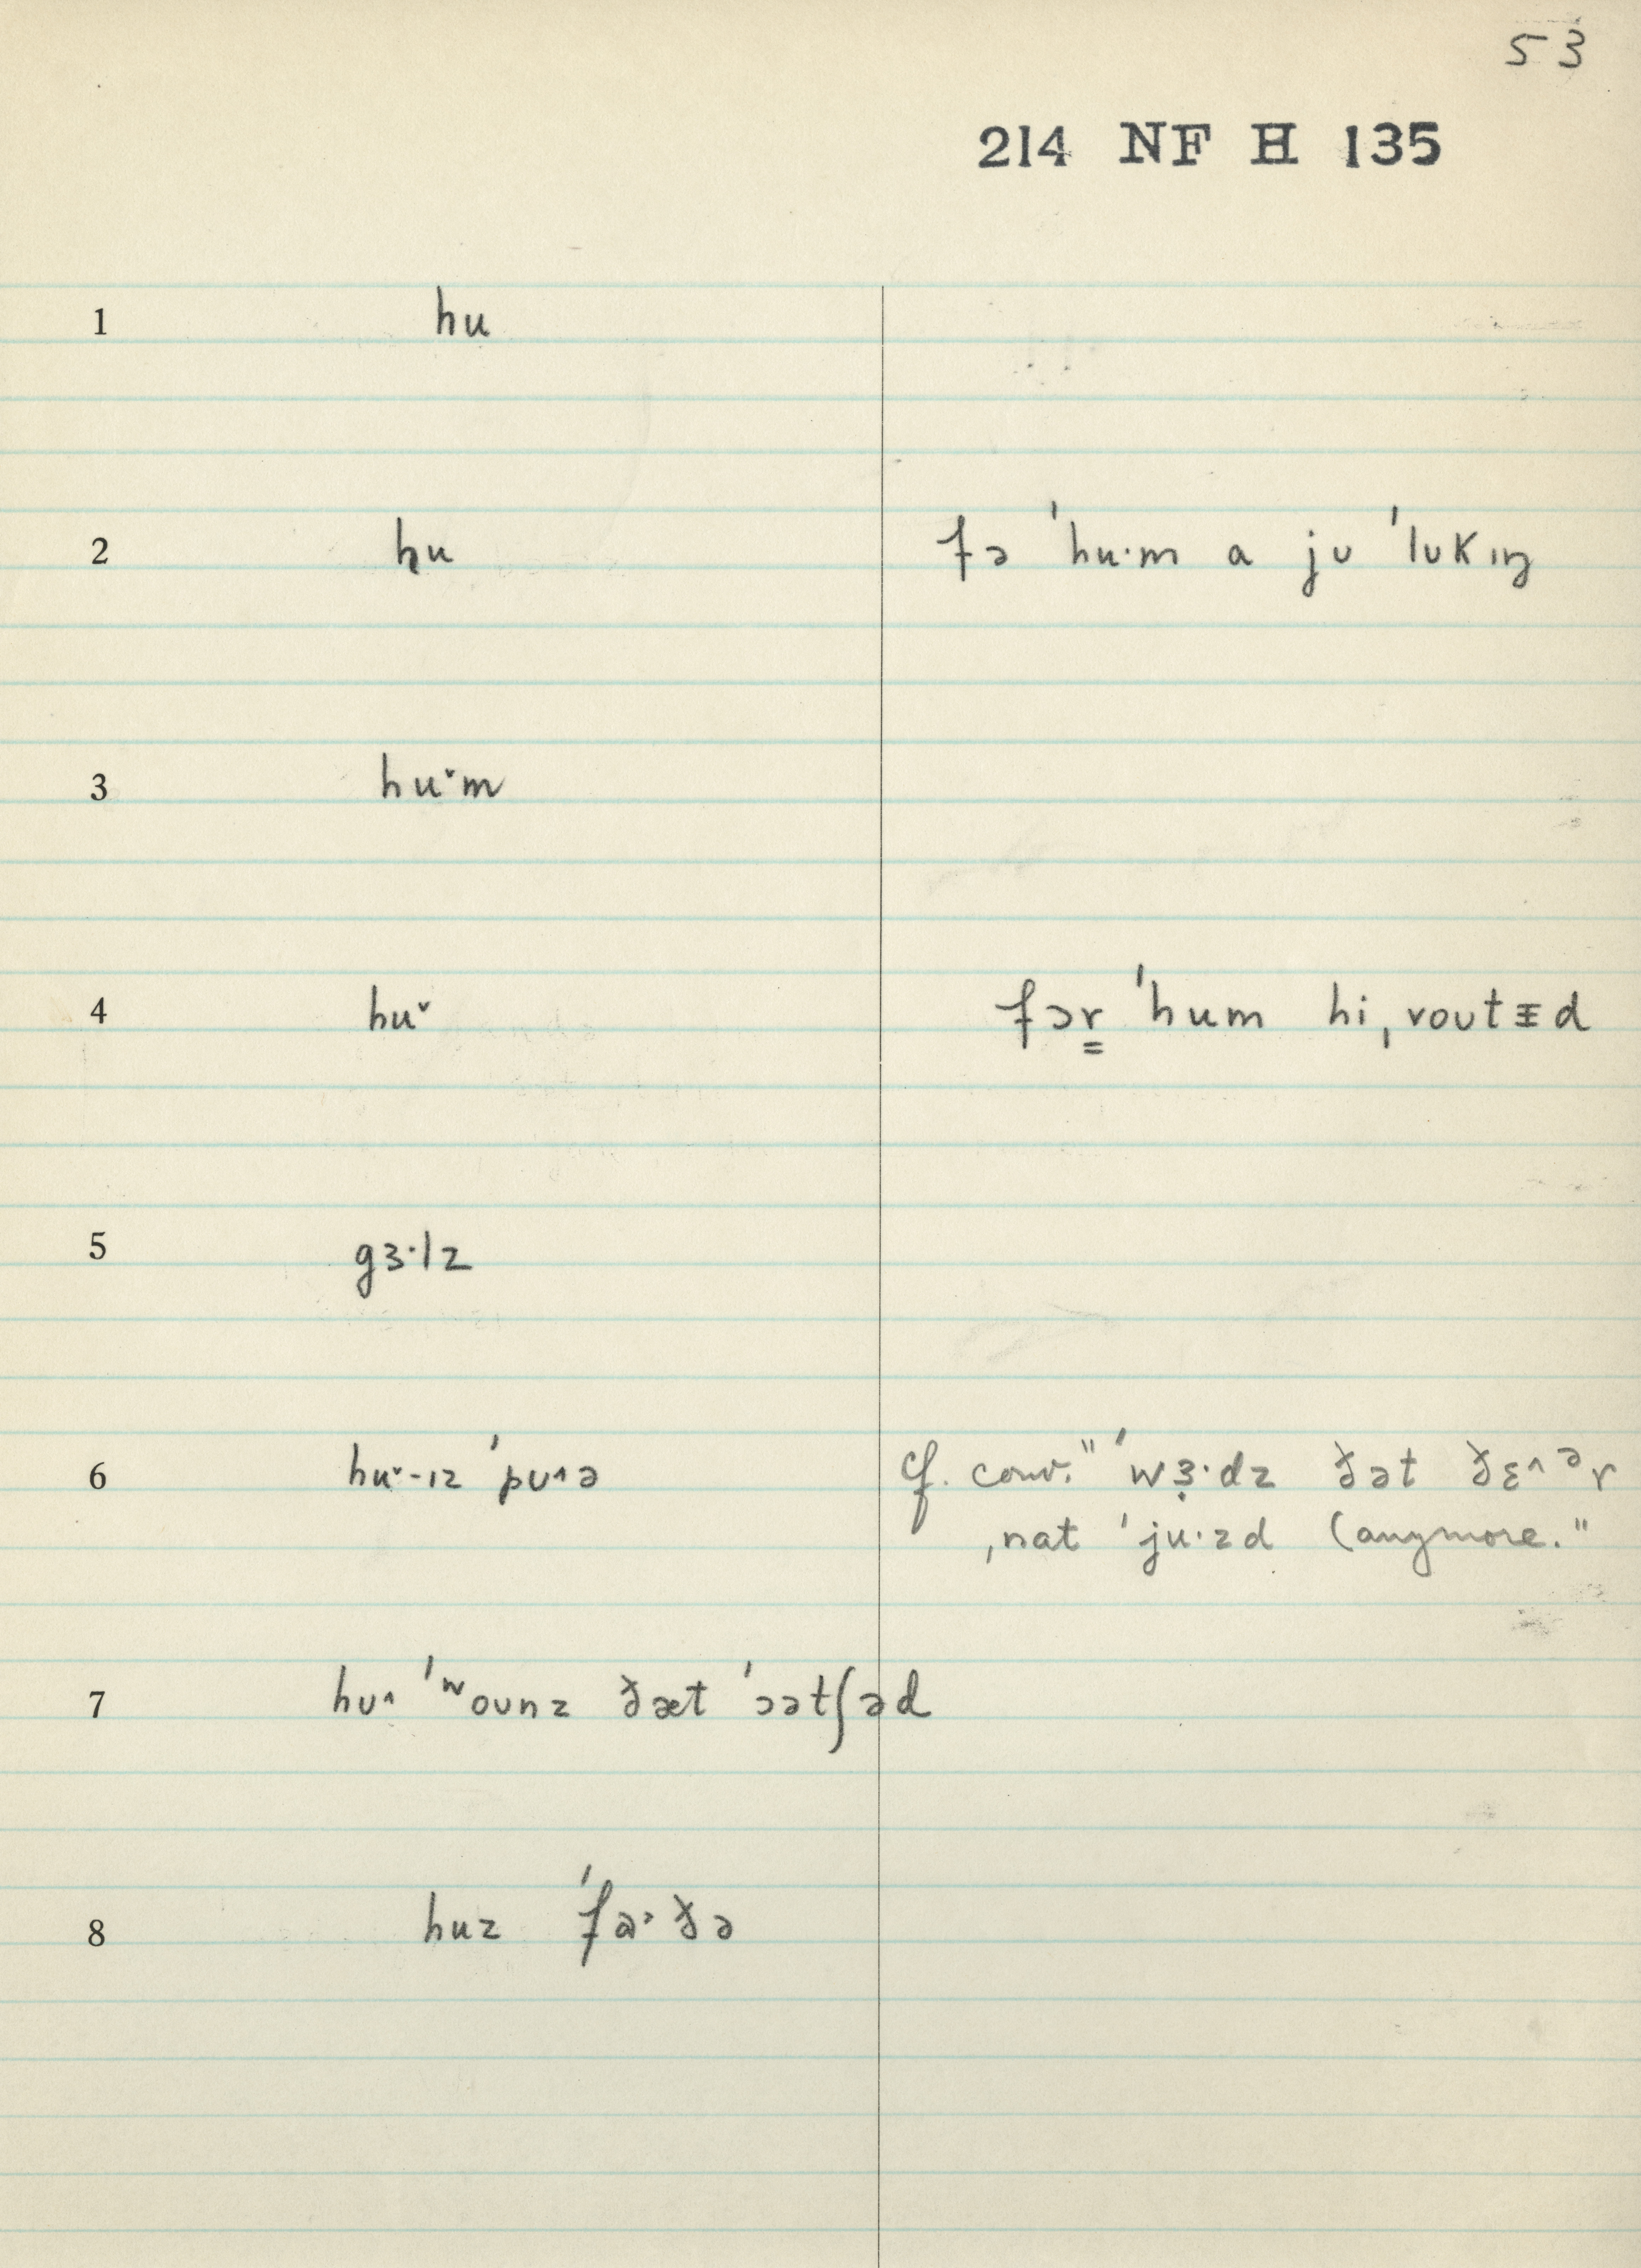 53
214 NF H 135
1 hu
2 hu fə ˈhu·m a jʊ ˈlʊkɪŋ
3 hu˅m
4 hu˅ fər̳ ˈhum hi ˌroʊtɪd
5 gɜ·lz
6 hu˅-ɪz ˈpʊ^ə cf. conv. "ˈwɜ̣·dz ðət ðɛ^ᵊr
ˌnat ˈju·zd (anymore."
7 hʊ^ ˈʷoʊnz ðæt ˈɔətʃəd
8 huz ˈfa˒ðə